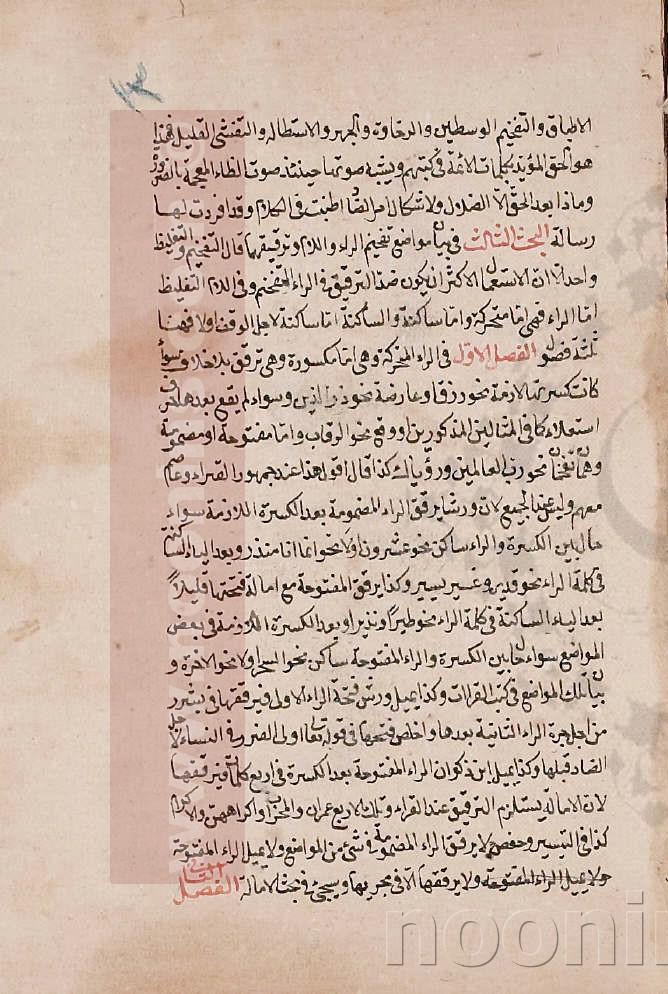 الاطباق والتفخيم الوسطين والرخاوة والجهر والاستطالة والتفشى القليل فهذا
هو الحق المؤيد بكلمات الائمة فى كتبهم ويشبه صوتها حينئذ صوت الظاء المعجمة بالضرورة
وماذا بعد الحق الا الضلال ولاشكال امر الضاد اطنبت فى الكلام وقد افردت لها
رسالة البحث الثالث فى بيان مواضع تفخيم الراء واللام وترقيقهما قال التفخيم والتغليظ
واحد الا ان الاستعمال الاكثر ان يكون ضد الترقيق فى الراء التفخيم وفى اللام التغليظ
اما الراء فهى اما متحركة واما ساكنة والساكنة اما ساكنة لاجل الوقف اولا فهنا
ثلثة فصول الفصل الاول فى الراء المتحركة وهى اما مكسورة وهى ترقق بلا خلاف سواء
كانت كسرتها لازمة نحو رزقا وعارضة نحو ذر الذين وسواء لم يقع بعدها حرف
استعلاء كما فى المثالين المذكورين او وقع نحو الرقاب واما مفتوحة او مضمومة
وهما تفخمان نحو رب العالمين ورؤياك كذا قال اقول هذا عند جمهور القراء وعاصم
معهم وليس عند الجميع لان ورشا يرقق الراء المضمومة بعد الكسرة اللازمة سواء
حال بين الكسرة والراء ساكن نحو عشرون اولا نحو انما انا منذر وبعد الياء الساكنة
فى كلمة الراء نحو قدير وغير يسير وكذا يرقق المفتوحة مع امالة فتحتها قليلا
بعد الياء الساكنة فى كلمة الراء نحو طيرا ونذيرا وبعد الكسرة اللازمة فى بعض
المواضع سواء حال بين الكسرة والراء المفتوحة ساكن نحو السحر اولا نحو الاخرة و
بيان تلك المواضع فى كتب القراات وكذا يميل ورش فتحة الراء الاولى فيرققها فى بشرر
من اجل جرة الراء الثانية بعدها واخلص فتحها فى قوله تعالى اولى الضرر فى النساء لاجل
الضاد قبلها وكذا يميل ابن ذكوان الراء المفتوحة بعد الكسرة فى اربع كلمات فيرققها
لان الامالة يستلزم الترقيق عند القراء وتلك الاربع عمران والمحراب واكراههن والاكرام
كذا فى التيسير وحفص لا يرقق الراء المضمومة فى شئ من المواضع ولا يميل الراء المفتوحة
ولا يميل الراء المفتوحة ولا يرققها الا فى مجريها وسيجئ فى بحث الامالة الفصل الثانى
noonl